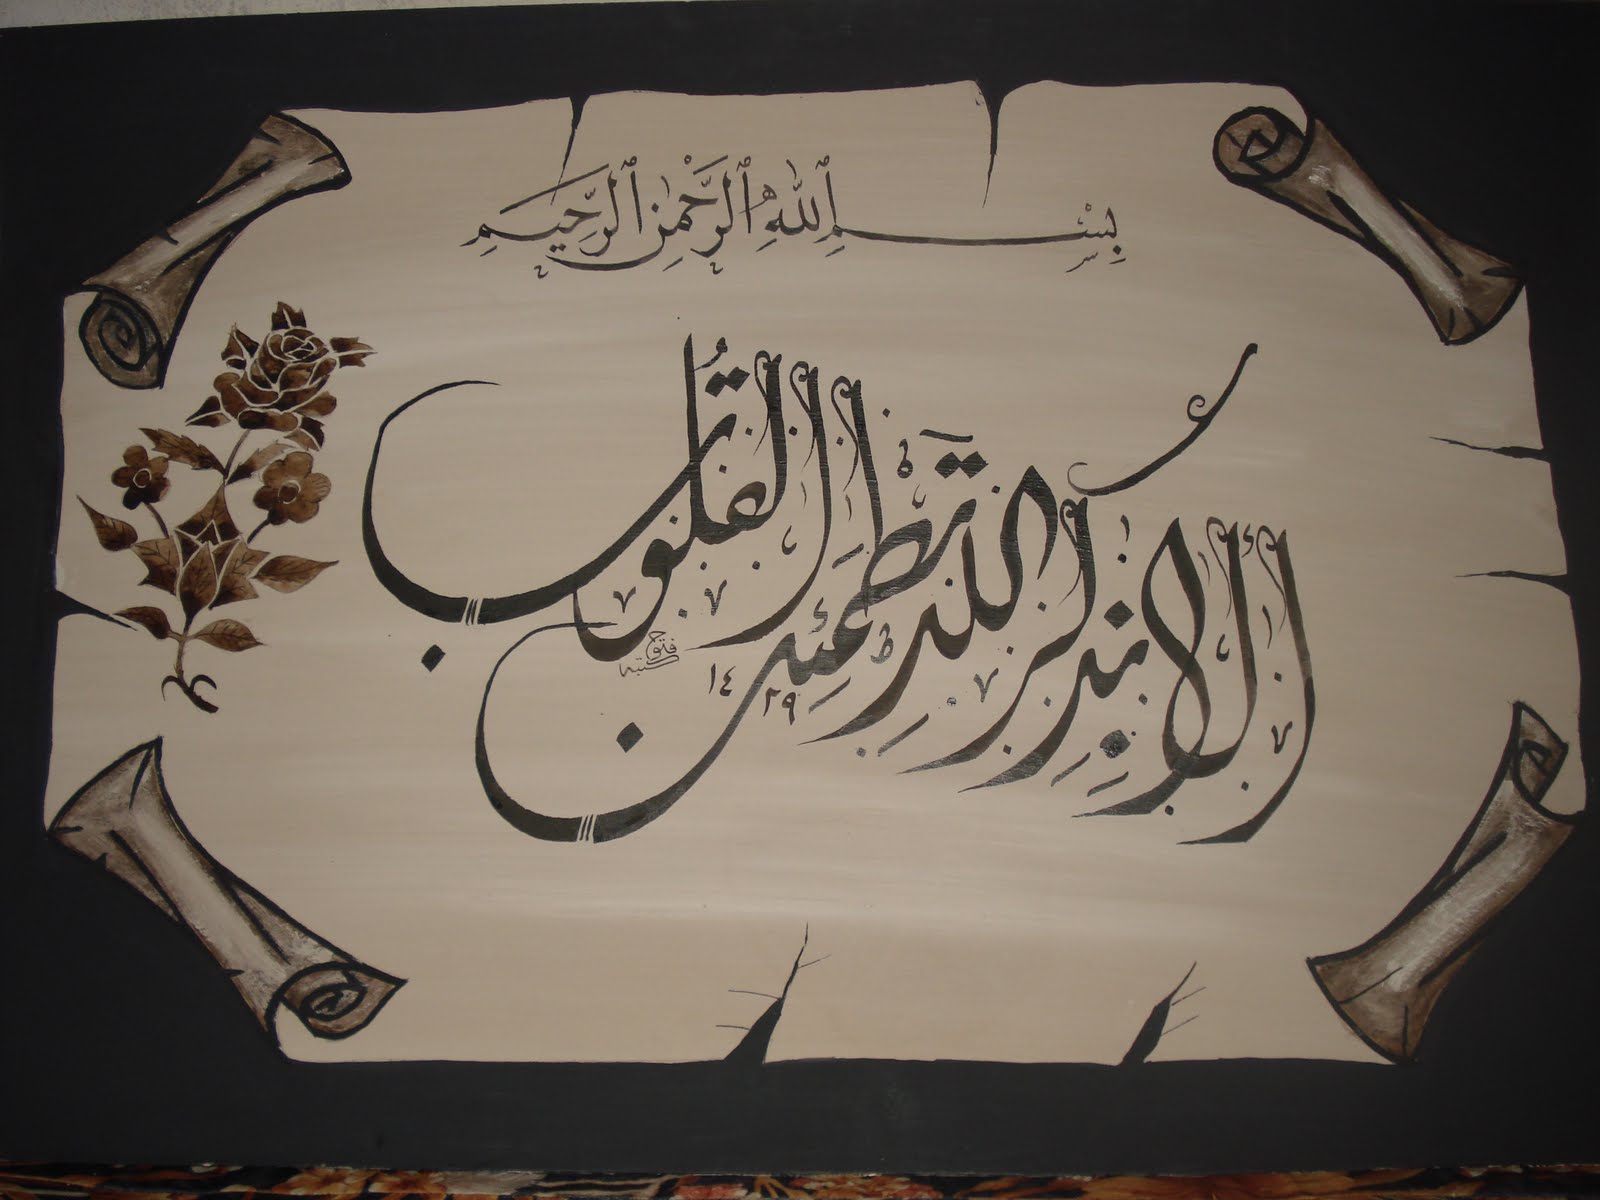 بِسْمِ ٱللَّهِ ٱلرَّحْمَٰنِ ٱلرَّحِيمِ
أَلَا بِذِكْرِ اللَّهِ تَطْمَئِنُّ الْقُلُوبُ
كتبه فتوح
١٤٢٩